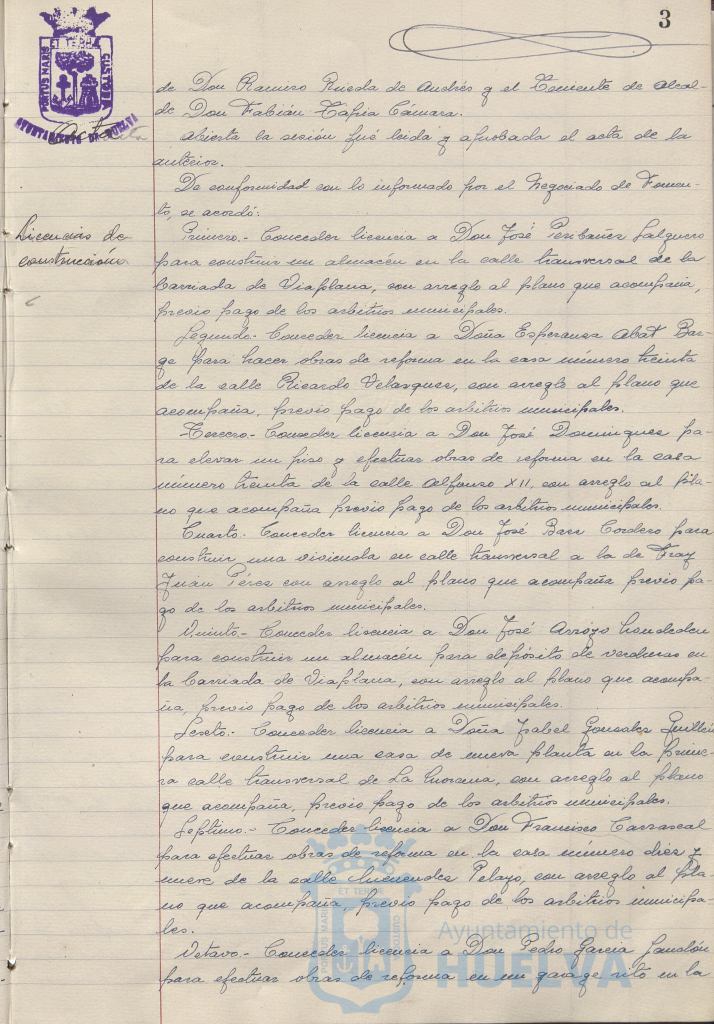 3
PORTUS MARIS ET TERRE CUSTODIA
AYUNTAMIENTO DE HUELVA
Acta
de Don Ramiro Rueda de Andrés y el Teniente de Alcal-
de Don Fabián Tapia Cámara.
Abierta la sesión fué leida y aprobada el acta de la
anterior.
De conformidad con lo informado por el Negociado de Fomen-
to, se acordó:
Licencias de
construcción
Primero.- Conceder licencia a Don José Peribañez Salguero
para construir un almacén en la calle transversal de la
barriada de Viaplana, con arreglo al plano que acompaña,
previo pago de los arbitrios municipales.
Segundo.- Conceder licencia a Doña Esperanza Abat Bar-
ge para hacer obras de reforma en la casa número treinta
de la calle Ricardo Velazquez, con arreglo al plano que
acompaña, previo pago de los arbitrios municipales.
Tercero.- Conceder licencia a Don José Dominguez pa-
ra elevar un piso y efectuar obras de reforma en la casa
número treinta de la calle Alfonso XII, con arreglo al pla-
no que acompaña previo pago de los arbitrios municipales.
Cuarto.- Conceder licencia a Don José Baez Cordero para
construir una vivienda en calle transversal a la de Fray
Juán Pérez con arreglo al plano que acompaña previo pa-
go de los arbitrios municipales.
Quinto.- Conceder licencia a Don José Arroyo
para construir un almacén para depósito de verduras en
la barriada de Viaplana, con arreglo al plano que acompa-
ña, previo pago de los arbitrios municipales.
Sexto.- Conceder licencia a Doña Isabel Gonzalez Guillén
para construir una casa de nueva planta en la prime-
ra calle transversal de La Morana, con arreglo al plano
que acompaña, previo pago de los arbitrios municipales.
Septimo.- Conceder licencia a Don Francisco Carrascal
para efectuar obras de reforma en la casa número diez y
nueve de la calle Menendez Pelayo, con arreglo al pla-
no que acompaña previo pago de los arbitrios municipa-
les.
Octavo.- Conceder licencia a Don Pedro Garcia
para efectuar obras de reforma en un garage sito en la
Ayuntamiento de
HUELVA